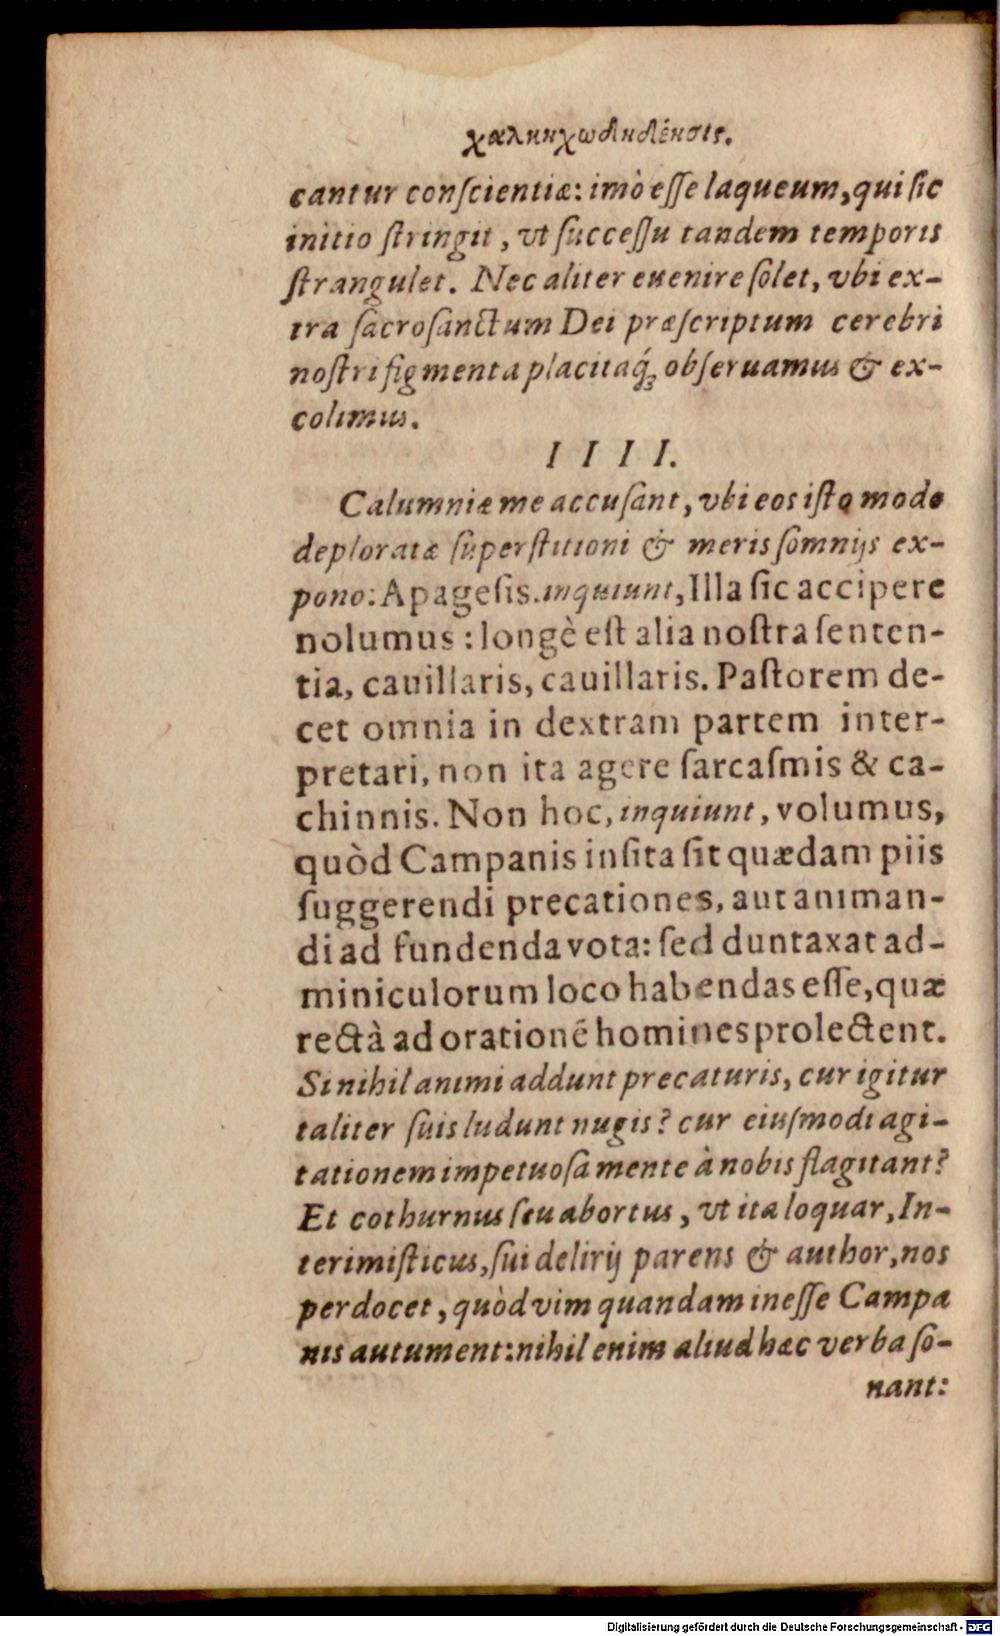 cantur conſcientiæ: imò eſſe laqueum, qui ſic
initio ſtringit, vt ſucceſſu tandem temporis
ſtrangulet. Nec aliter euenire ſolet, vbi ex-
tra ſacroſanctum Dei præſcriptum cerebri
noſtri figmenta placitaq́ꝫ obſeruamus & ex-
colimus.
I I I I.
Calumniæ me accuſant, vbi eos iſto modo
deploratæ ſuperſtitioni & meris ſomnijs ex-
pono: Apageſis. inquiunt, Illa ſic accipere
nolumus: longè eſt alia noſtra ſenten-
tia, cauillaris, cauillaris. Paſtorem de-
cet omnia in dextram partem inter-
pretari, non ita agere ſarcaſmis & ca-
chinnis. Non hoc, inquiunt, volumus,
quòd Campanis inſita ſit quædam piis
ſuggerendi precationes, aut animan-
di ad fundenda vota: ſed duntaxat ad-
miniculorum loco habendas eſſe, quæ
rectà ad orationē homines prolectent.
Si nihil animi addunt precaturis, cur igitur
taliter ſuis ludunt nugis? cur eiuſmodi agi-
tationem impetuoſa mente à nobis flagitant?
Et cothurnus ſeu abortus, vt ita loquar, In-
terimiſticus, ſui delirij parens & author, nos
perdocet, quòd vim quandam ineſſe Campa
nis autument: nihil enim aliud hæc verba ſo-
nant:
Digitalisierung gefördert durch die Deutsche Forschungsgemeinschaft - DFG